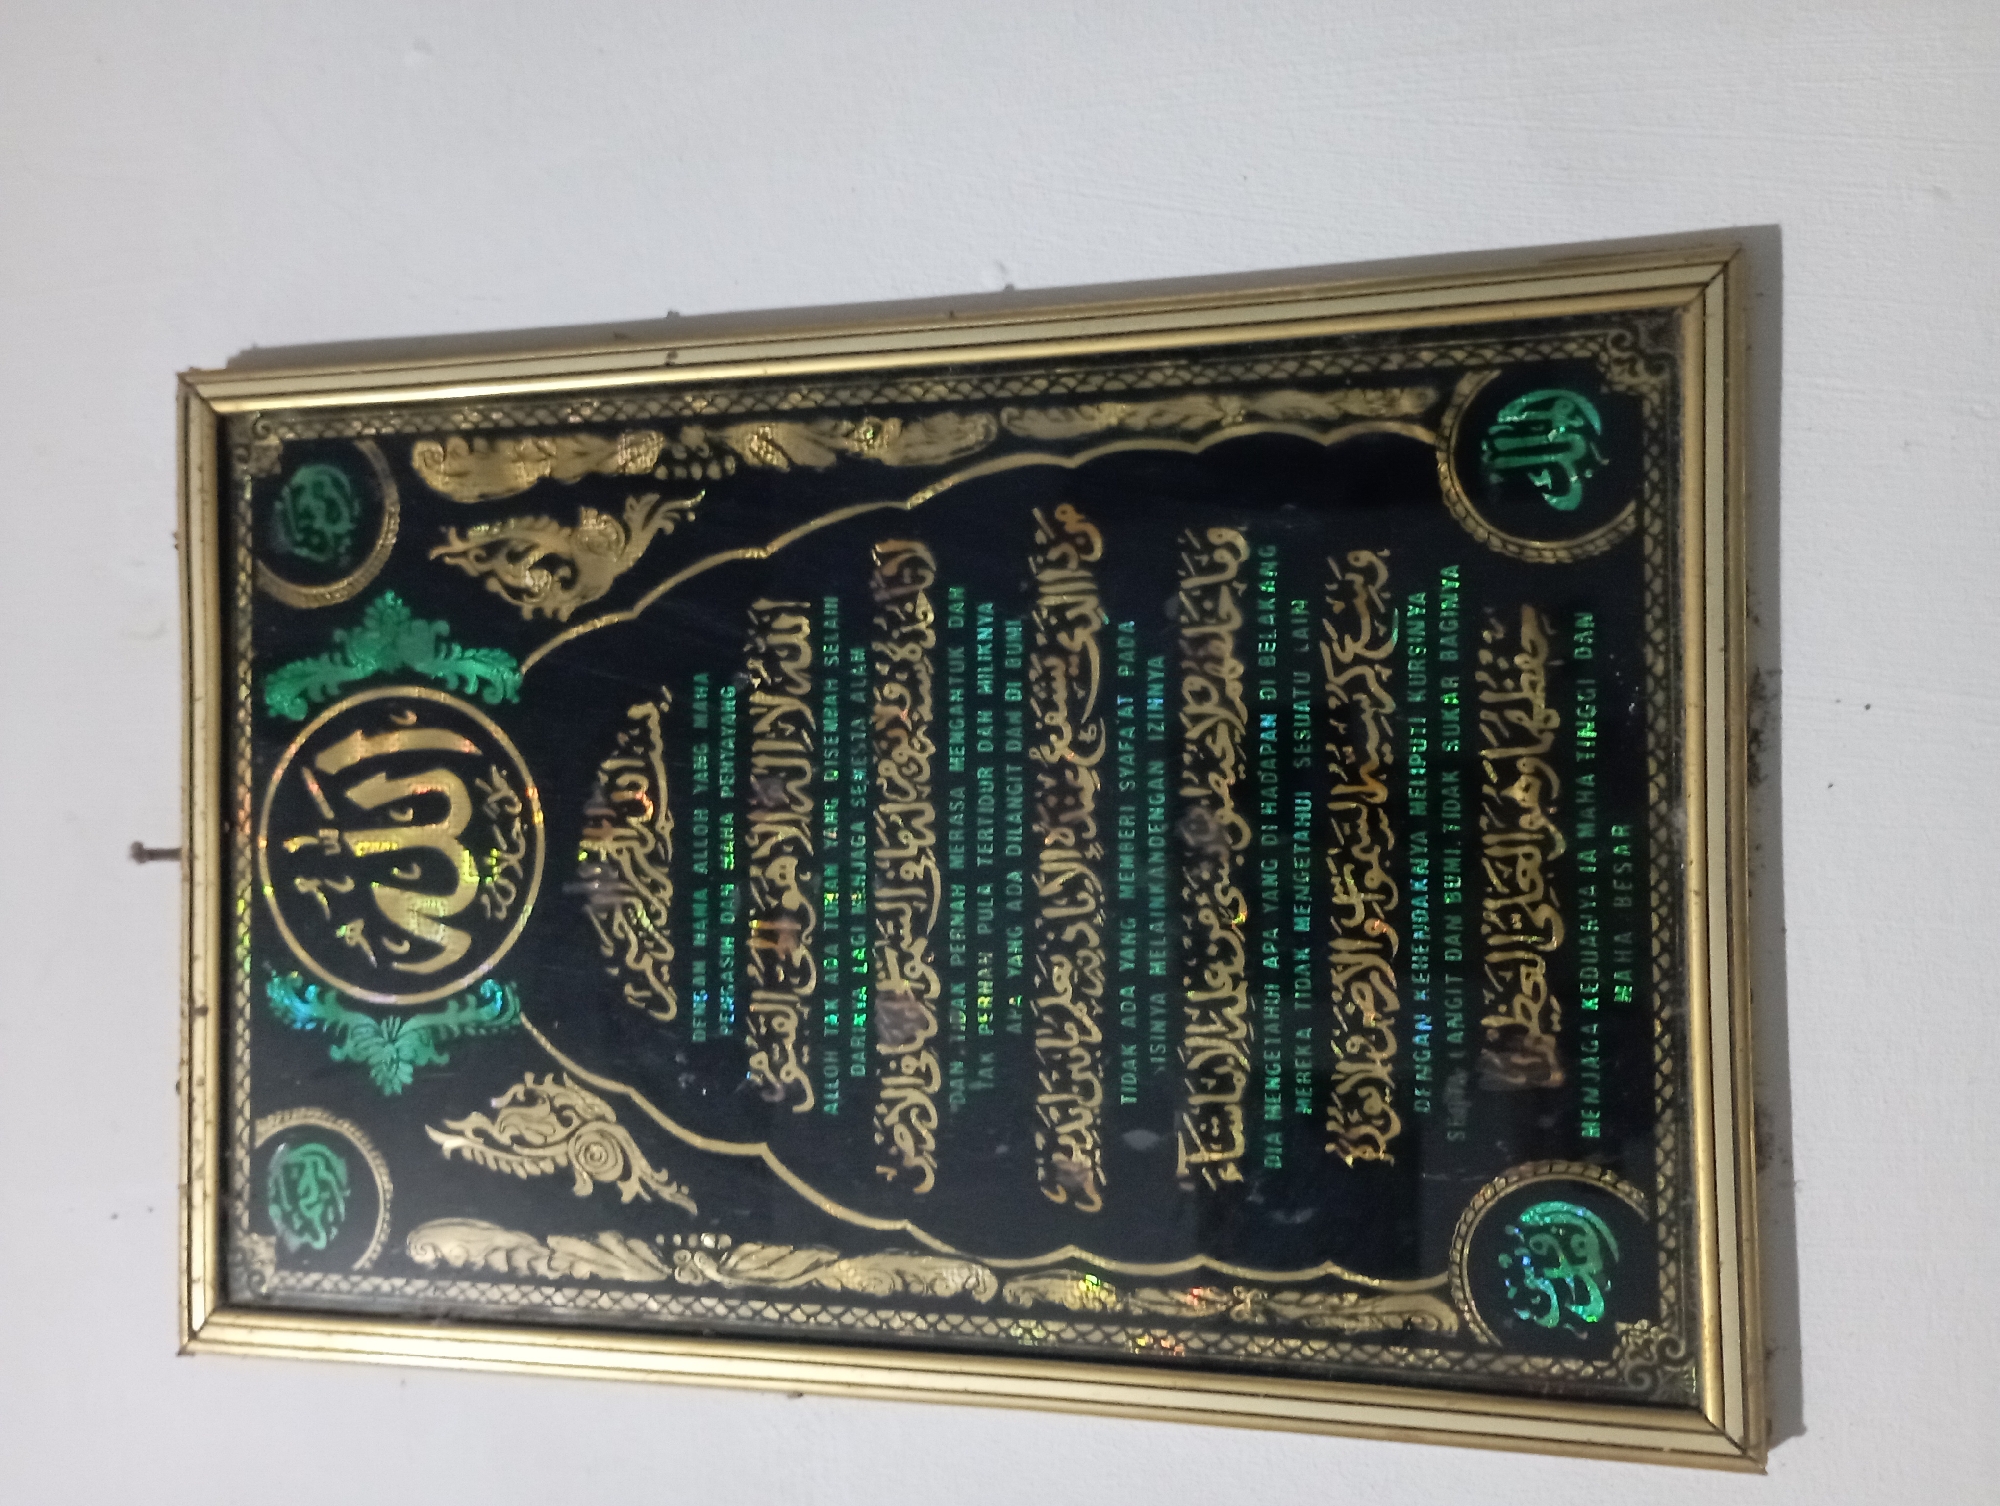 الله
جل جلاله
بسم الله الرحمن الرحيم
DENGAN NAMA ALLOH YANG MAHA
PENGASIH DAN MAHA PENYAYANG
الله لا اله الا هو الحي القيوم
ALLOH TAK ADA TUHAN YANG DISEMBAH SELAIN
DARINYA LAGI MENJAGA SEMESTA ALAM
لا تأخذه سنة ولا نوم له ما في السموات وما في الارض
DAN TIDAK PERNAH MERASA MENGANTUK DAN
TAK PERNAH PULA TERTIDUR DAN MILIKNYA
APA YANG ADA DILANGIT DAN DI BUMI
من ذا الذي يشفع عنده الا باذنه يعلم ما بين ايديهم
TIDAK ADA YANG MEMBERI SYAFA'AT PADA
SISINYA MELAINKANDENGAN IZINNYA
وما خلفهم ولا يحيطون بشيء من علمه الا بما شاء
DIA MENGETAHUI APA YANG DI HADAPAN DI BELAKANG
MEREKA TIDAK MENGETAHUI SESUATU LAIN
وسع كرسيه السموت والارض ولا يؤده
DENGAN KEHENDAKNYA MELIPUTI KURSINYA
LANGIT DAN BUMI.TIDAK SUKAR BAGINYA
حفظهما وهو العلي العظيم
MENJAGA KEDUANYA IA MAHA TINGGI DAN
MAHA BESAR